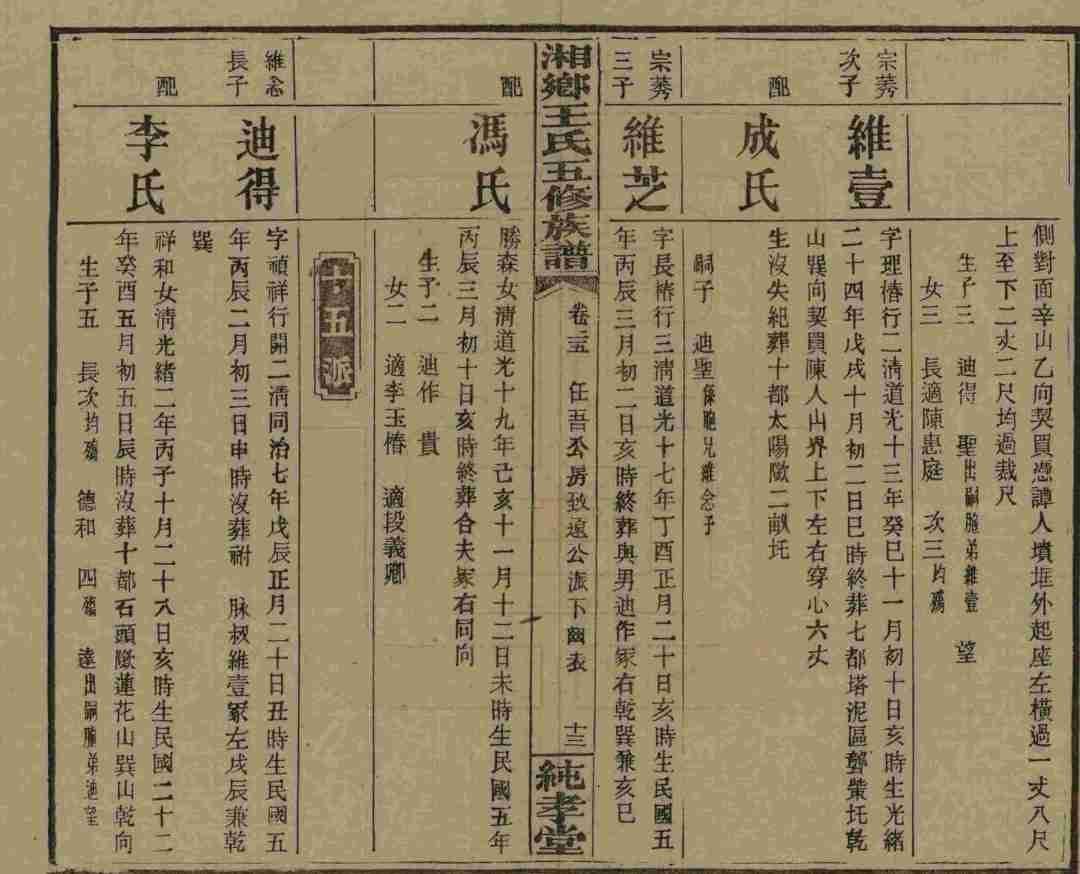 側對面辛山乙向契買憑譚人墳堆外起座左橫過一丈八尺
上至下二丈二尺均過裁尺
生子三 迪得 聖出嗣胞弟維壹 望
女三 長適陳惠庭 次三均殤
宗莠
次子
維壹
字理椿行二清道光十三年癸巳十一月初十日亥時生光緒
二十四年戊戌十月初二日巳時終葬七都塔泥區礱柴圫乾
山巽向契買陳人山界上下左右穿心六丈
配
成氏
生沒失紀葬十都太陽㘰二畝圫
嗣子 迪聖係胞兄維念子
宗莠
三子
維芝
字長椿行三清道光十七年丁酉正月二十日亥時生民國五
年丙辰三月初二日亥時終葬與男迪作冢右乾巽兼亥巳
湘鄉王氏五修族譜
卷三五 任吾公房致遠公派下齒表 十三
純孝堂
配
馮氏
勝森女清道光十九年己亥十一月十二日未時生民國五年
丙辰三月初十日亥時終葬合夫冢右同向
生子二 迪作 貴
女二 適李玉椿 適段義卿
派
維念
長子
迪得
字禎祥行開二清同治七年戊辰正月二十日丑時生民國五
年丙辰二月初三日申時沒葬祔 脉叔維壹冢左戌辰兼乾
巽
配
李氏
祥和女清光緒二年丙子十月二十八日亥時生民國二十二
年癸酉五月初五日辰時沒葬十都石頭㘰蓮花山巽山乾向
生子五 長次均殤 德和 四殤 達出嗣胞弟迪望